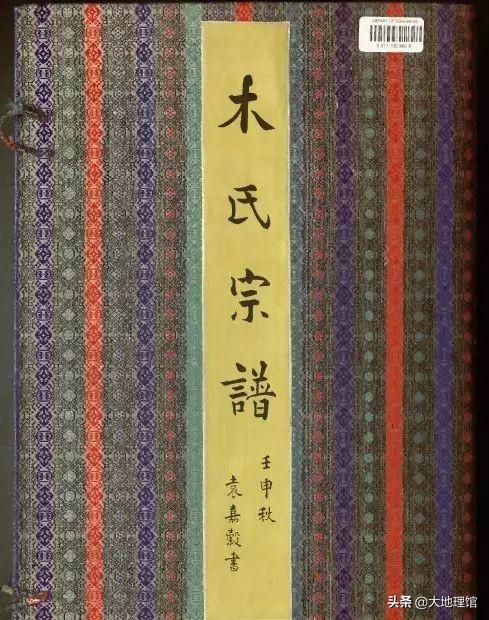 LIBRARY OF CONGRESS
木氏宗譜
壬申秋
袁嘉穀書
头条 @大地理馆